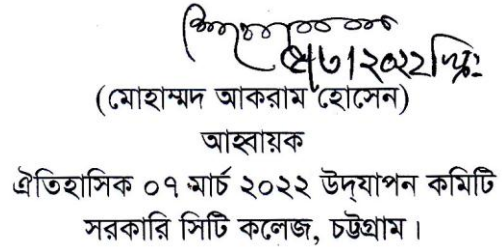 (মোহাম্মদ আকরাম হোসেন)
আহ্বায়ক
ঐতিহাসিক ০৭ মার্চ ২০২২ উদ্‌যাপন কমিটি
সরকারি সিটি কলেজ, চট্টগ্রাম।